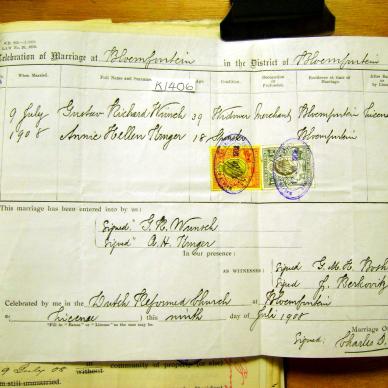 Celebration of Marriage at Bloemfontein in the District of Bloemfontein
When Married.
Full Names and Surname.
Age.
Condition.
Residence at time of Marriage.
K1406
9 July Gustav Richard Wunsch 39 Widower Merchant Bloemfontein Licence
1908 Annie Hellen Unger 18 Spinster Bloemfontein
This marriage has been entered into by us:
Signed " G. R. Wunsch
Signed " A. H. Unger
In our presence:
AS WITNESSES:
Signed G. M. E. Both
Signed J. Berkovitz
Celebrated by me in the Dutch Reformed Church at Bloemfontein
by Licence this ninth day of Juli 1908
"Fill in "Banns" or "License" as the case may be.
Marriage
Signed: Charles D.
9 July 08
without
community of property